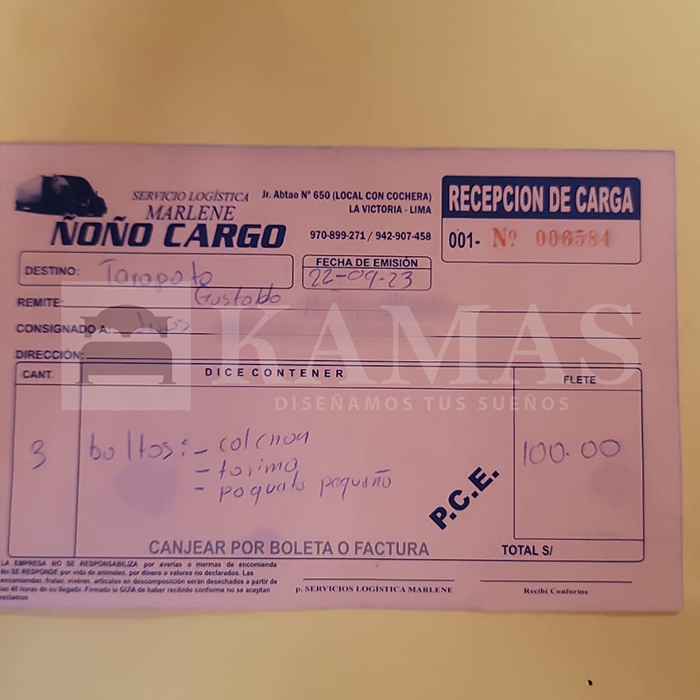 SERVICIO LOGÍSTICA
MARLENE
ÑOÑO CARGO
Jr. Abtao N° 650 (LOCAL CON COCHERA)
LA VICTORIA - LIMA
970-899-271 / 942-907-458
RECEPCION DE CARGA
001- Nº 006584
DESTINO: Tarapoto
FECHA DE EMISIÓN
22-09-23
REMITE: Gustabo
CONSIGNADO A:
DIRECCIÓN:
KAMAS
DISEÑAMOS TUS SUEÑOS
CANT. DICE CONTENER FLETE
3 boltos: - colchon 100.00
- tarima
- paquete pequeño
P.C.E.
CANJEAR POR BOLETA O FACTURA TOTAL S/
LA EMPRESA NO SE RESPONSABILIZA por averías o mermas de encomienda
No SE RESPONDE por vida de animales, por dinero o valores no declarados. Las
encomiendas, frutas, víveres, artículos en descomposición serán desechados a partir de
las 48 horas de su llegada. Firmada la GUÍA de haber recibido conforme no se aceptan
reclamos
p. SERVICIOS LOGÍSTICA MARLENE
Recibí Conforme